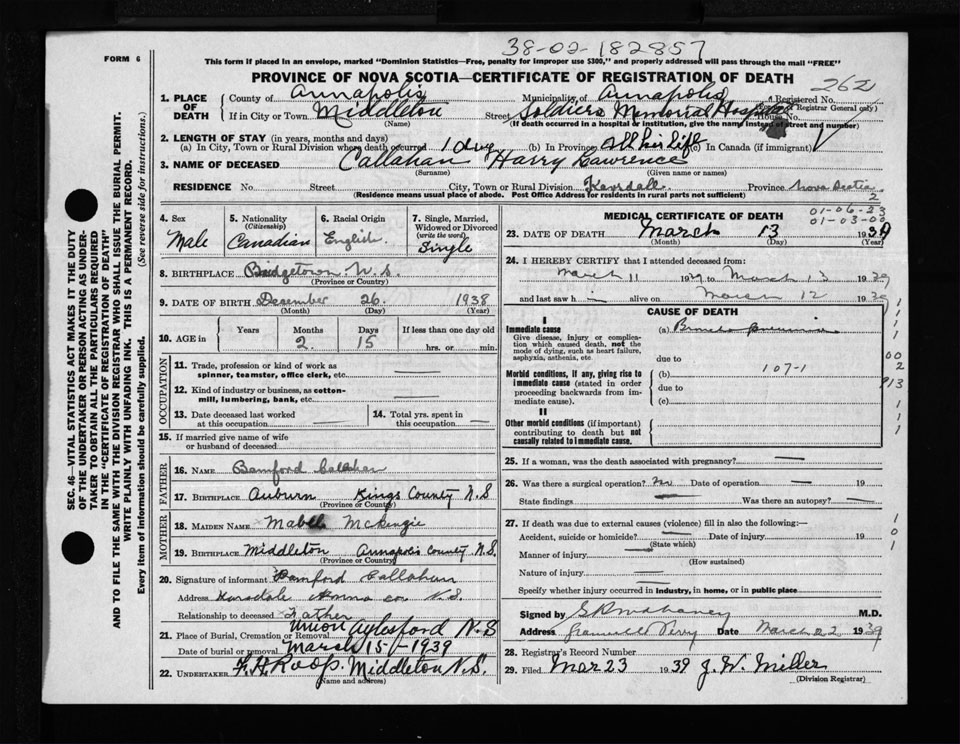 38-02-182857
FORM 6
This form if placed in an envelope, marked "Dominion Statistics—Free, penalty for improper use $300," and properly addressed will pass through the mail "FREE"
PROVINCE OF NOVA SCOTIA—CERTIFICATE OF REGISTRATION OF DEATH
262
1. PLACE OF DEATH
County of Annapolis Municipality of Annapolis Registered No.
(Registrar General only)
If in City or Town Middleton Street Soldiers Memorial Hospital House No.
(Name) (If death occurred in a hospital or institution, give the name instead of street and number)
2. LENGTH OF STAY (in years, months and days)
(a) In City, Town or Rural Division where death occurred 1 day (b) In Province All his life (c) In Canada (if immigrant)
3. NAME OF DECEASED Callahan Harry Lawrence
(Surname) (Given name or names)
RESIDENCE No. Street City, Town or Rural Division Karsdale Province Nova Scotia
(Residence means usual place of abode. Post Office Address for residents in rural parts not sufficient)
2
4. Sex Male
5. Nationality (Citizenship) Canadian
6. Racial Origin English
7. Single, Married, Widowed or Divorced (write the word) Single
8. BIRTHPLACE Bridgetown N.S.
(Province or Country)
9. DATE OF BIRTH December 26 1938
(Month) (Day) (Year)
10. AGE in Years Months 2 Days 15 If less than one day old
hrs. or min.
OCCUPATION
11. Trade, profession or kind of work as spinner, teamster, office clerk, etc.
12. Kind of industry or business, as cotton-mill, lumbering, bank, etc.
13. Date deceased last worked at this occupation
14. Total yrs. spent in this occupation
15. If married give name of wife or husband of deceased
FATHER
16. NAME Bamford Callahan
17. BIRTHPLACE Auburn Kings County N.S
(Province or Country)
MOTHER
18. MAIDEN NAME Mabel McKenzie
19. BIRTHPLACE Middleton Annapolis County N.S.
(Province or Country)
20. Signature of informant Bamford Callahan
Address Karsdale Anna co. N.S.
Relationship to deceased Father
21. Place of Burial, Cremation or Removal Union Aylesford N.S
Date of burial or removal March 15-1939
22. UNDERTAKER F.H. Roop. Middleton N.S.
(Name and address)
MEDICAL CERTIFICATE OF DEATH
01-06-23
01-03-00
23. DATE OF DEATH March 13 1939
(Month) (Day) (Year)
24. I HEREBY CERTIFY that I attended deceased from:
March 11 1939 to March 13 1939
and last saw h i alive on March 12 1939
CAUSE OF DEATH
I
Immediate cause (a) Broncho pneumonia
Give disease, injury or complication which caused death, not the mode of dying, such as heart failure, asphyxia, asthenia, etc.
due to
Morbid conditions, if any, giving rise to immediate cause (stated in order proceeding backwards from immediate cause).
(b) 107-1
due to
(c)
II
Other morbid conditions (if important) contributing to death but not causally related to immediate cause.
25. If a woman, was the death associated with pregnancy?
26. Was there a surgical operation? No Date of operation 19
State findings Was there an autopsy?
27. If death was due to external causes (violence) fill in also the following:—
Accident, suicide or homicide? Date of injury 19
(State which)
Manner of injury
(How sustained)
Nature of injury
Specify whether injury occurred in industry, in home, or in public place
Signed by M.D.
Address Granville Ferry Date March 22 1939
28. Registrar's Record Number
29. Filed Mar 23 1939 J. W. Miller
(Division Registrar)
SEC. 46—VITAL STATISTICS ACT MAKES IT THE DUTY
OF THE UNDERTAKER OR PERSON ACTING AS UNDER-
TAKER TO OBTAIN ALL THE PARTICULARS REQUIRED
IN THE "CERTIFICATE OF REGISTRATION OF DEATH"
AND TO FILE THE SAME WITH THE DIVISION REGISTRAR WHO SHALL ISSUE THE BURIAL PERMIT.
WRITE PLAINLY WITH UNFADING INK. THIS IS A PERMANENT RECORD.
Every item of Information should be carefully supplied. (See reverse side for instructions.)